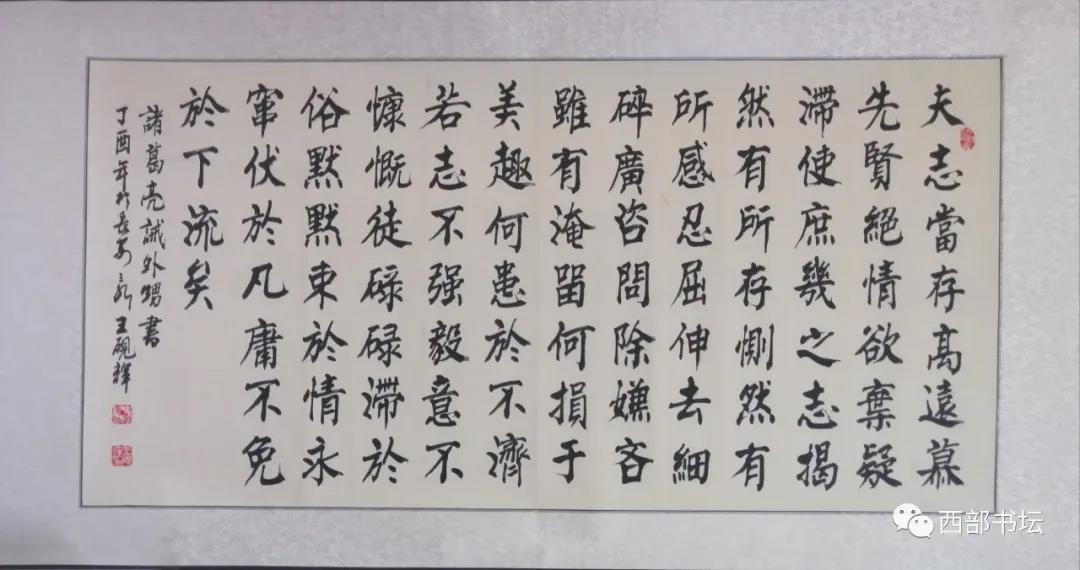 夫志當存高遠慕
先賢絕情欲棄疑
滯使庶幾之志揭
然有所存惻然有
所感忍屈伸去細
碎廣咨問除嫌吝
雖有淹留何損于
美趣何患於不濟
若志不强毅意不
慷慨徒碌碌滯於
俗默默束於情永
竄伏於凡庸不免
於下流矣
諸葛亮誡外甥書
丁酉年於長安 王硯輝
西部书坛